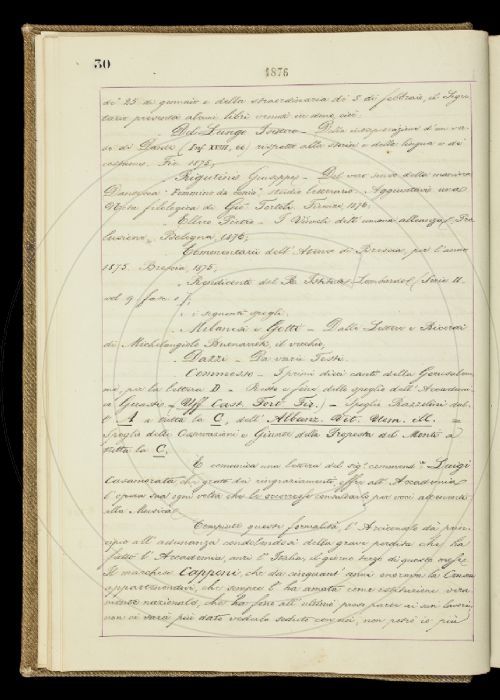 30
1876
de' 25 di gennaio e della straordinaria de' 5 di febbraio, il Segre-
tario presenta alcuni libri venuti in dono, cioè:
Del Lungo Isidoro — Della interpretazione d'un ver-
so di Dante (Inf. XVIII, ) rispetto alla storia e della lingua e de'
costumi. Fir. 1875;
Rigutini Giuseppe — Del vero senso della maniera
Dantesca studio letterario. Aggiuntavi una
Nota filologica di Gio. Tortoli. Firenze 1876;
Ellero Pietro — I Vincoli dell'umana alleanza, Pro-
lusione. Bologna, 1876;
Commentarii dell'Ateneo di Brescia, per l'anno
1875. Brescia, 1875;
Rendiconti del R. Istituto Lombardo (Serie II.
vol. 9 fasc. 1);
i seguenti spogli:
Milanesi e Gotti — Dalle Lettere e Ricordi
di Michelangiolo Buonarroti, il vecchio;
Dazzi — Da varii Testi.
Commesso — I primi dieci canti della Gerusalem-
me, per la lettera D — Resto e fine dello spoglio dell'Arcadia
e Giunte — (Uff. Cast. Fort. Fir.) — Spoglio Razzolini dal-
l' A a tutta la C, dell' Albanz. Vit. Uom. ill. =
Spoglio delle Osservazioni e Giunte della Proposta del Monti a
tutta la C.
È comunicata una lettera del sig. commend.re Luigi
Casamorata che, grato in ringraziamento, offre all'Accademia
l'opera sua ogni volta che le occorresse consultarlo per voci attenenti
alla Musica.
Compiute queste formalità l'Arciconsolo dà prin-
cipio all'adunanza condolendosi della grave perdita che ha
fatto l'Accademia, anzi l'Italia, il giorno terzo di questo mese.
Il marchese Capponi, che da cinquant'anni onorava la Crusca
appartenendovi, che sempre l'ha amata come istituzione vera-
mente nazionale, che ha fino all'ultimo preso parte ai suoi lavori,
non ci sarà più dato vederlo seduto con noi, non potrà io più